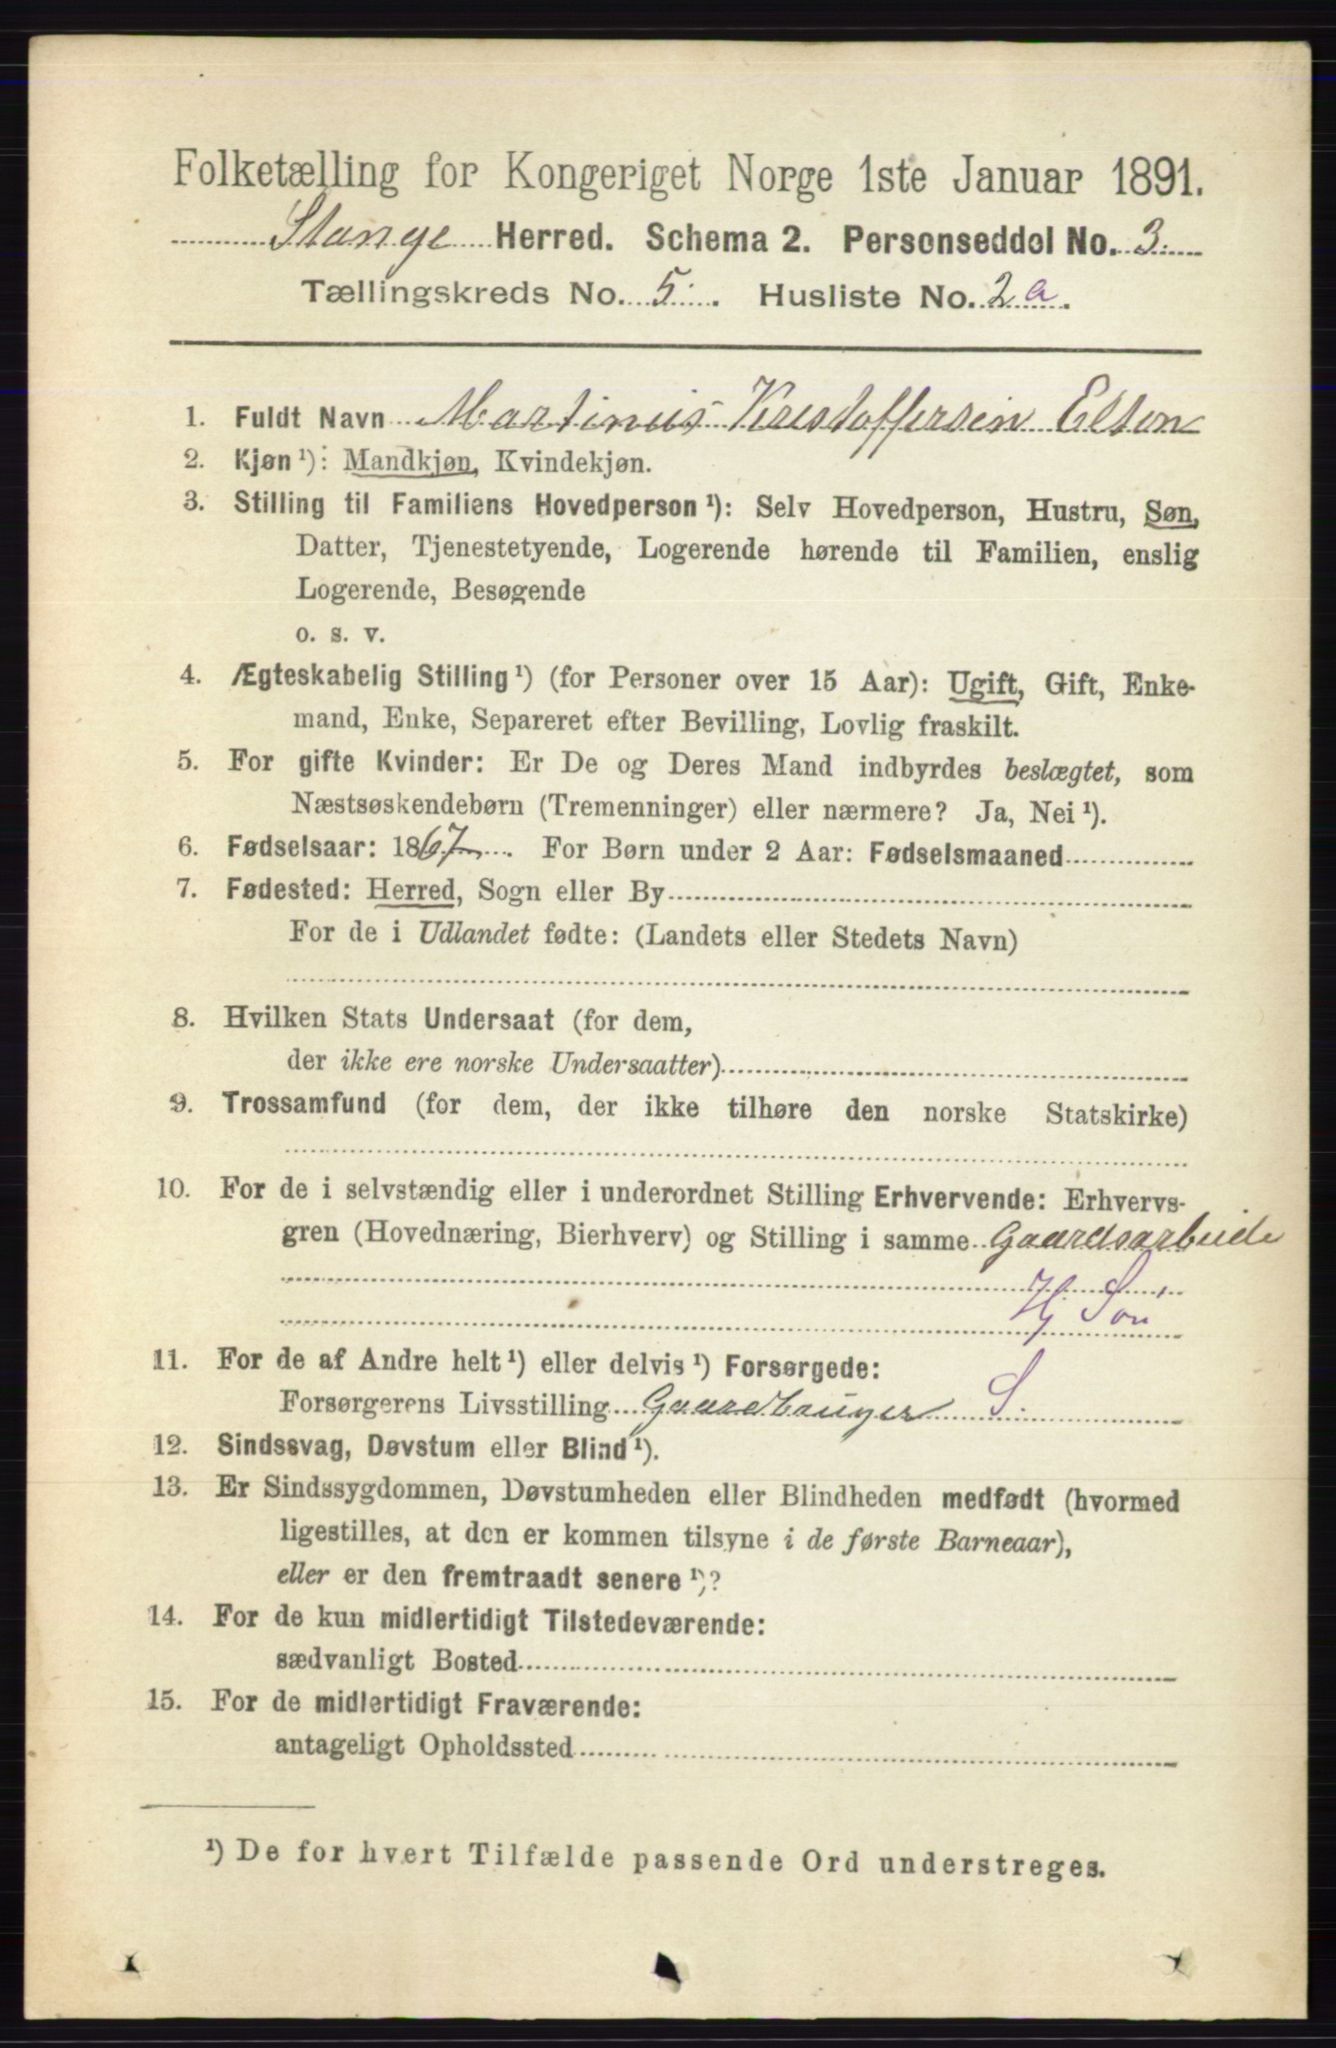 Folketælling for Kongeriget Norge 1ste Januar 1891.
Stange Herred. Schema 2. Personseddel No. 3.
Tællingskreds No. 5. Husliste No. 2 a.
1. Fuldt Navn Martinus Krestoffersen Elton
2. Kjøn ¹): Mandkjøn, Kvindekjøn.
3. Stilling til Familiens Hovedperson ¹): Selv Hovedperson, Hustru, Søn,
Datter, Tjenestetyende, Logerende hørende til Familien, enslig
Logerende, Besøgende
o. s. v.
4. Ægteskabelig Stilling ¹) (for Personer over 15 Aar): Ugift, Gift, Enke-
mand, Enke, Separeret efter Bevilling, Lovlig fraskilt.
5. For gifte Kvinder: Er De og Deres Mand indbyrdes beslægtet, som
Næstsøskendebørn (Tremenninger) eller nærmere? Ja, Nei ¹).
6. Fødselsaar: 1867. For Børn under 2 Aar: Fødselsmaaned
7. Fødested: Herred, Sogn eller By
For de i Udlandet fødte: (Landets eller Stedets Navn)
8. Hvilken Stats Undersaat (for dem,
der ikke ere norske Undersaatter)
9. Trossamfund (for dem, der ikke tilhøre den norske Statskirke)
10. For de i selvstændig eller i underordnet Stilling Erhvervende: Erhvervs-
gren (Hovednæring, Bierhverv) og Stilling i samme Gaardsarbeide
Hj Søn
11. For de af Andre helt ¹) eller delvis ¹) Forsørgede:
Forsørgerens Livsstilling Gaardbruger S.
12. Sindssvag, Døvstum eller Blind ¹).
13. Er Sindssygdommen, Døvstumheden eller Blindheden medfødt (hvormed
ligestilles, at den er kommen tilsyne i de første Barneaar),
eller er den fremtraadt senere ¹)?
14. For de kun midlertidigt Tilstedeværende:
sædvanligt Bosted
15. For de midlertidigt Fraværende:
antageligt Opholdssted
¹) De for hvert Tilfælde passende Ord understreges.